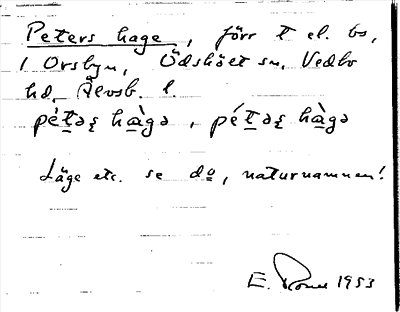 Peters hage, förr t el. bs,
i Orsbyn, Ödsköet sn, Vedbo
hd, Älvsb. l.
pétəʂ hàgə, pétəʂ hàgə
Läge etc. se do, naturnamnen!
E. 1953